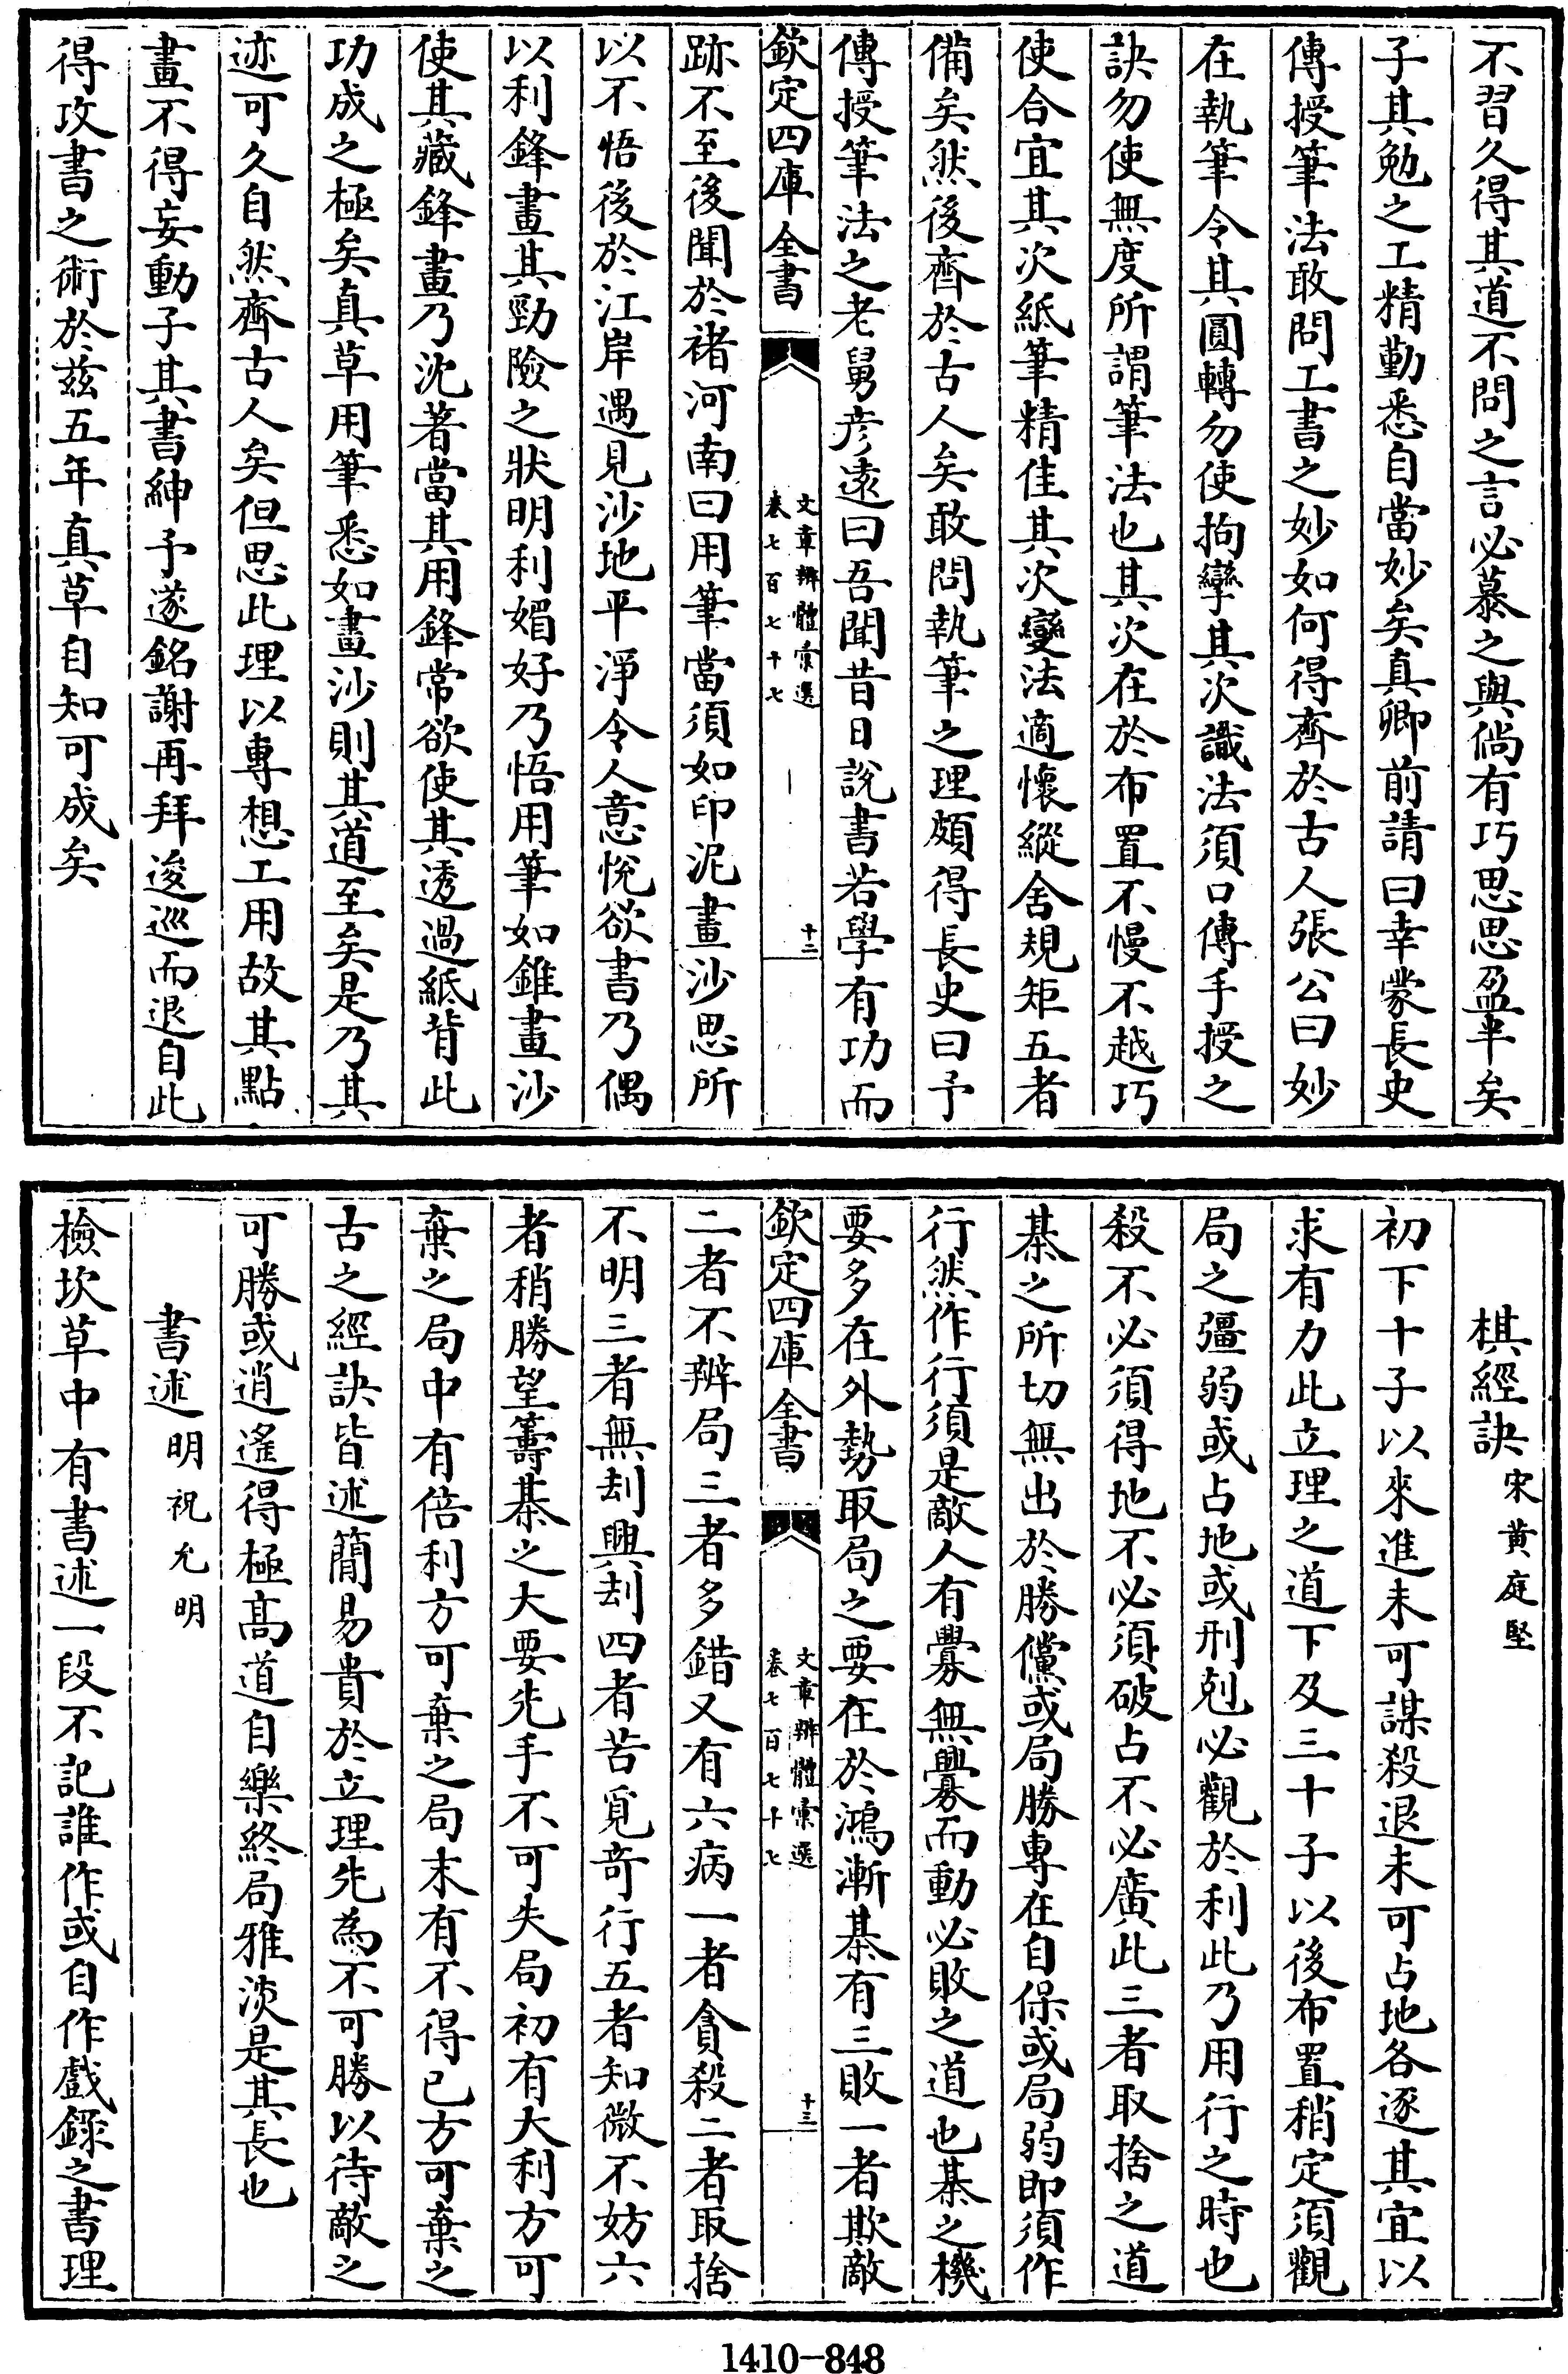 不習久得其道不問之言必慕之與倘有巧思思盈半矣
子其勉之工精勤悉自當妙矣真卿前請曰幸蒙長史
傳授筆法敢問工書之妙如何得齊於古人張公曰妙
在執筆令其圓轉勿使拘攣其次識法須口傳手授之
訣勿使無度所謂筆法也其次在於布置不慢不越巧
使合宜其次紙筆精佳其次變法適懷縱舍規矩五者
備矣然後齊於古人矣敢問執筆之理頗得長史曰予
傳授筆法之老舅彦遠曰吾聞昔日說書若學有功而
欽定四庫全書
文章辨體彚選
卷七百七十七
十二
跡不至後聞於褚河南曰用筆當須如印泥畫沙思所
以不悟後於江岸遇見沙地平淨令人意悅欲書乃偶
以利鋒畫其勁險之狀明利媚好乃悟用筆如錐畫沙
使其藏鋒畫乃沈著當其用鋒常欲使其透過紙背此
功成之極矣真草用筆悉如畫沙則其道至矣是乃其
迹可久自然齊古人矣但思此理以專想工用故其點
畫不得妄動子其書紳予遂銘謝再拜逡巡而退自此
得攻書之術於兹五年真草自知可成矣
棋經訣宋黄庭堅
初下十子以來進未可謀殺退未可占地各逐其宜以
求有力此立理之道下及三十子以後布置稍定須觀
局之彊弱或占地或刑剋必觀於利此乃用行之時也
殺不必須得地不必須破占不必廣此三者取捨之道
棊之所切無出於勝儻或局勝專在自保或局弱即須作
行然作行須是敵人有釁無釁而動必敗之道也棊之機
要多在外勢取局之要在於鴻漸棊有三敗一者欺敵
欽定四庫全書
文章辨體彚選
卷七百七十七
十三
二者不辨局三者多錯又有六病一者貪殺二者取捨
不明三者無刦興刦四者苦覓奇行五者知微不妨六
者稍勝望籌棊之大要先手不可失局初有大利方可
棄之局中有倍利方可棄之局末有不得已方可棄之
古之經訣皆述簡易貴於立理先為不可勝以待敵之
可勝或逍遙得極髙道自樂終局雅淡是其長也
書述明祝允明
檢坎草中有書述一段不記誰作或自作戲錄之書理
1410-848